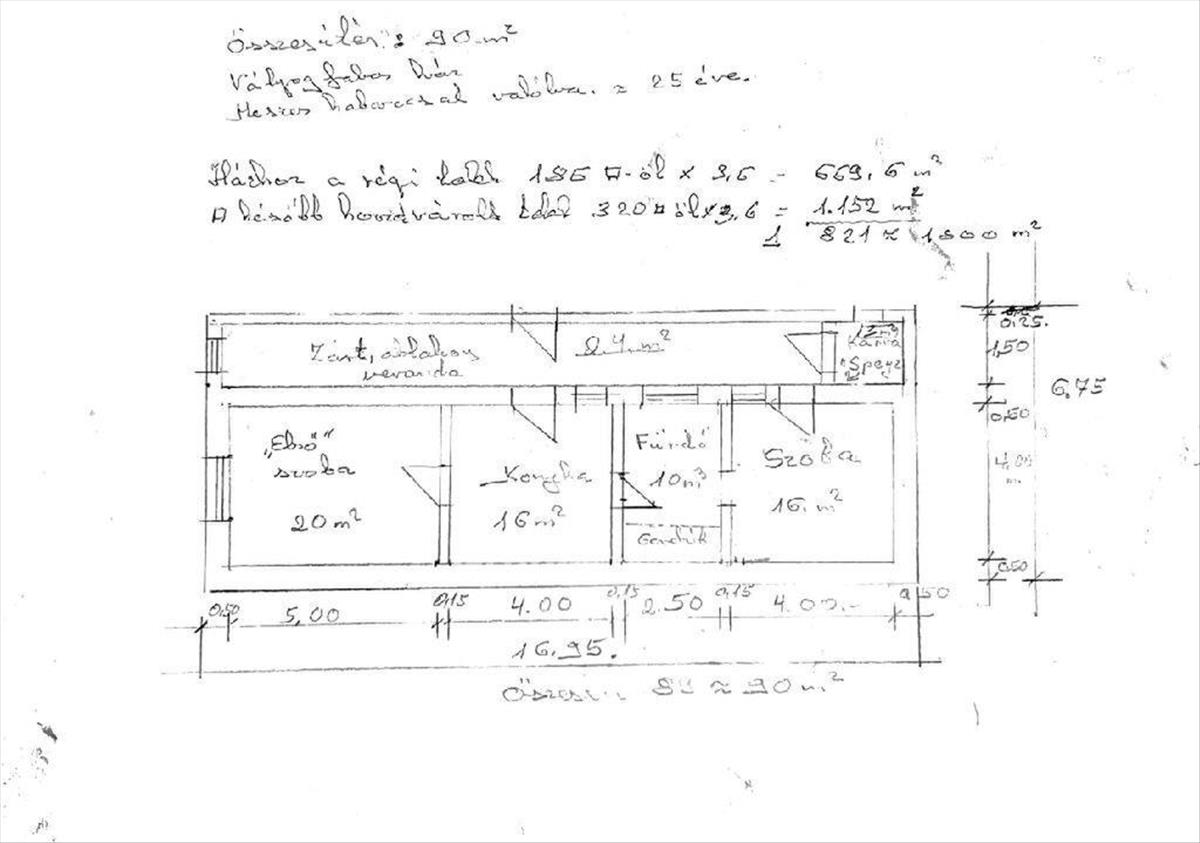 Összesítés: 90 m²
Vályogfalas ház
Meszes habarccsal valólva. ≈ 25 éve.
Házhoz a régi telek 186 □-öl × 3,6 = 669,6 m²
A később hozzávásárolt telek 320 □ öl × 3,6 = 1.152 m²
1 821 ≈ 1800 m²
0,25.
1,50
6,75
0,50
4,00
0,50
Zárt, ablakos
veranda
24 m²
Kamra
"Spejz"
"Első"
szoba
20 m²
Konyha
16 m²
Fürdő
10 m²
Gardrób
Szoba
16. m²
0,50 5,00 0,15 4.00 0,15 2.50 0,15 4.00.- 0,50
16.95.
Összesen: ≈ 90 m²